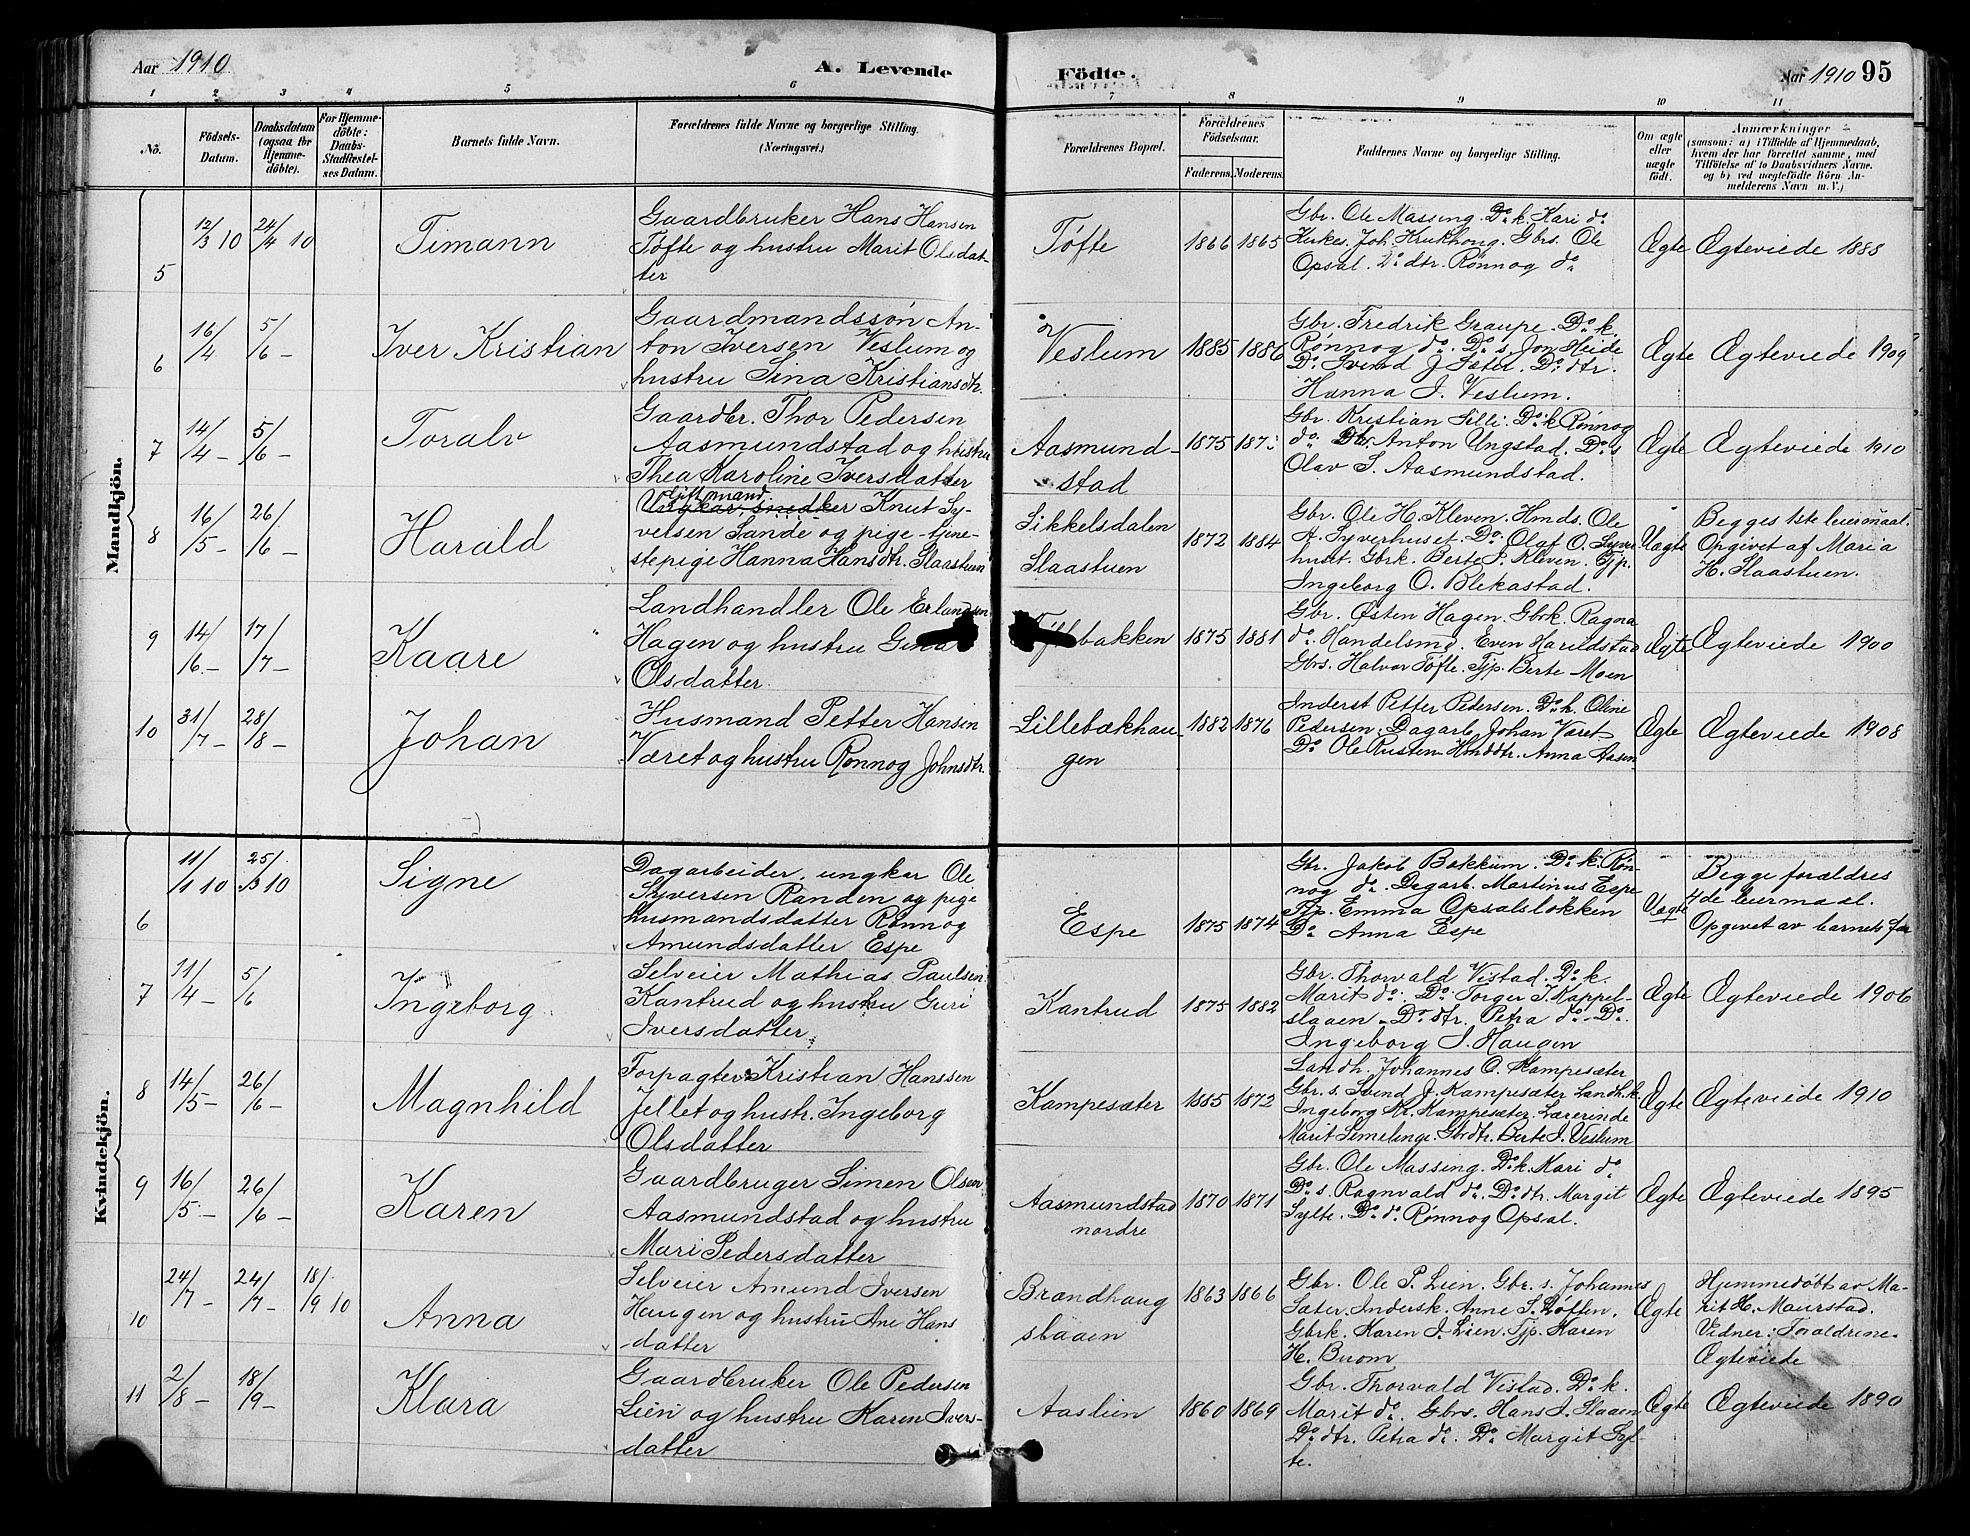 Aar 1910
A. Levende
Födte.
Aar 1910 95
1 2 3 4 5 6 7 8 9 10 11
No.
Födsels-
Datum.
Daabsdatum
(ogsaa for
Hjemme-
döbte).
For Hjemme-
döbte:
Daabs-
Stadfæstel-
ses Datum.
Barnets fulde Navn.
Forældrenes fulde Navne og borgerlige Stilling.
(Næringsvei.)
Forældrenes Bopæl.
Forældrenes
Födselsaar.
Faderens. Moderens.
Faddernes Navne og borgerlige Stilling.
Om ægte
eller
uægte
födt.
Anmærkninger
(saasom: a) i Tilfælde af Hjemmedaab,
hvem der har forrettet samme, med
Tilföielse af to Daabsvidners Navne.
og b) ved uægtefödte Börn An-
melderens Navn m. V.)
Mandkjön.
5
12/3 10
24/4 10
Timann
Gaardbruker Hans Hansen
Tøfte og hustru Marit Olsdat-
ter
Tøfte
1866 1865
Gbr. Ole Massing. Do k. Kari do
Kirkes. Joh. Krukhong. Gbrs. Ole
Opsal. Do dtr. Rønnog do
Ægte
Ægteviede 1888
6
16/4
5/6 -
Iver Kristian
Gaardmandssøn An-
ton Iversen Veslum og
hustru Sina Kristiansdtr.
Veslum
1885 1886
Gbr. Fredrik Graupe. Do k.
Rønnog do. Do s. Jon Heide
Do Svend J. Sæter. Do dtr.
Hanna I. Veslum.
Ægte
Ægteviede 1909
7
14/4 -
5/6 -
Toralv
Gaardbr. Thor Pedersen
Aasmundstad og hustru
Thea Karoline Iversdatter
Aasmund-
stad
1875
Gbr. Kristian Lilli. Do k Rønnog
do. Anton Ungstad. Do s
Olav S. Aasmundstad.
Ægte
Ægteviede 1910
8
16/5 -
26/6 -
Harald
Gift mand.
Ungkar, smedker Knut Sy-
versen Sande og pige tjene-
stepige Hanna Hansdtr. Slaastuen
Sikkelsdalen
Slaastuen
1872 1884
Gbr. Ole H. Kleven. Hmds. Ole
A. Syverhuset. Do Olaf O. Syver-
huset. Gbrk. Berte S. Kleven. Tjp.
Ingeborg O. Blekastad.
Uægte
Begges 1ste leiermaal.
Opgivet af Maria
H. Slaastuen.
9
14/6 -
17/7 -
Kaare
Landhandler Ole Erlandsen
Hagen og hustru Gina
Olsdatter.
Tøftebakken
1875 1881
Gbr. Østen Hagen. Gbrk. Ragna
do. Handelsmd. Even Harildstad
Gbrs. Halvor Tøfte. Tjp. Berte Moen
Ægte
Ægteviede 1900
10
31/7 -
28/8 -
Johan
Husmand Petter Hansen
Været og hustru Rønnog Johnsdtr.
Lillebækhau-
gen
1882 1876
Inderst Petter Pedersen. Do k. Oline
Pedersen. Dagarb. Johan Været
Do Ole Rusten Hmddtr. Anna Aasen
Ægte
Ægteviede 1908
Kvindekjön.
6
11/1 10
25/3 10
Signe
Dagarbeider, ungkar Ole
Syversen Randen og pige
husmandsdatter Rønnog
Amundsdatter Espe
Espe
1875 1874
Gbr. Jakob Bakkum. Do k. Røn-
nog do. Dagarb. Martinus Espe
Tjp. Emma Opsalsløkken
Do Anna Espe
Uægte
Begge forældres
4de leiermaal.
Opgivet av barnets far
7
11/4 -
5/6
Ingeborg
Selveier Mathias Paulsen
Kantrud og hustru Guri
Iversdatter
Kantrud
1875 1882
Gbr. Thorvald Vistad. Do k
Marit do. Do Torger I. Kappel-
slaaen. Do dtr. Petra do. Do.
Ingeborg S. Haugen
Ægte
Ægteviede 1906
8
14/5 -
26/6 -
Magnhild
Forpagter Kristian Hanssen
Jellet og hustr. Ingeborg
Olsdatter
Kampesæter
1885 1872
Landh. Johannes O. Kampesæter
Gbr. s. Svend J. Kampesæter Landh.k.
Ingeborg Kr. Kampesæter. Lærerinde
Marit Semelinge. Gbrdtr. Berte I. Veslum
Ægte
Ægteviede 1910
9
16/5 -
26/6 -
Karen
Gaardbruger Simen Olsen
Aasmundstad og hustru
Mari Pedersdatter
Aasmundstad
nordre
1870 1871
Gbr. Ole Massing. Do k. Kari do
Do s. Ragnvald do. Do dtr. Margit
Sylte. Do do Rønnog Opsal.
Ægte
Ægteviede 1895
10
24/7 -
24/7 -
18/9 10
Anna
Selveier Amund Iversen
Haugen og hustru Ane Hans
datter
Brændhaug
slaaen
1863 1866
Gbr. Ole P. Lien. Gbr. s. Johannes
Sæter. Indersk. Anne S. Løften.
Gbrk. Karen I. Lien. Tjp. Karen
H. Buom
Ægte
Hjemmedøbt av Ma-
rit H. Maurstad.
Vidner: Forældrene.
Ægteviede
11
2/8 -
18/9 -
Klara
Gaardbruker Ole Pedersen
Lien og hustru Karen Ivers-
datter
Aaslien
1860 1869
Gbr. Thorvald Vistad. Do k.
Marit do. Gbrs. Hans I. Slaaen
Do dtr. Petra do. Do Margit Syl-
te.
Ægte
Ægteviede 1890